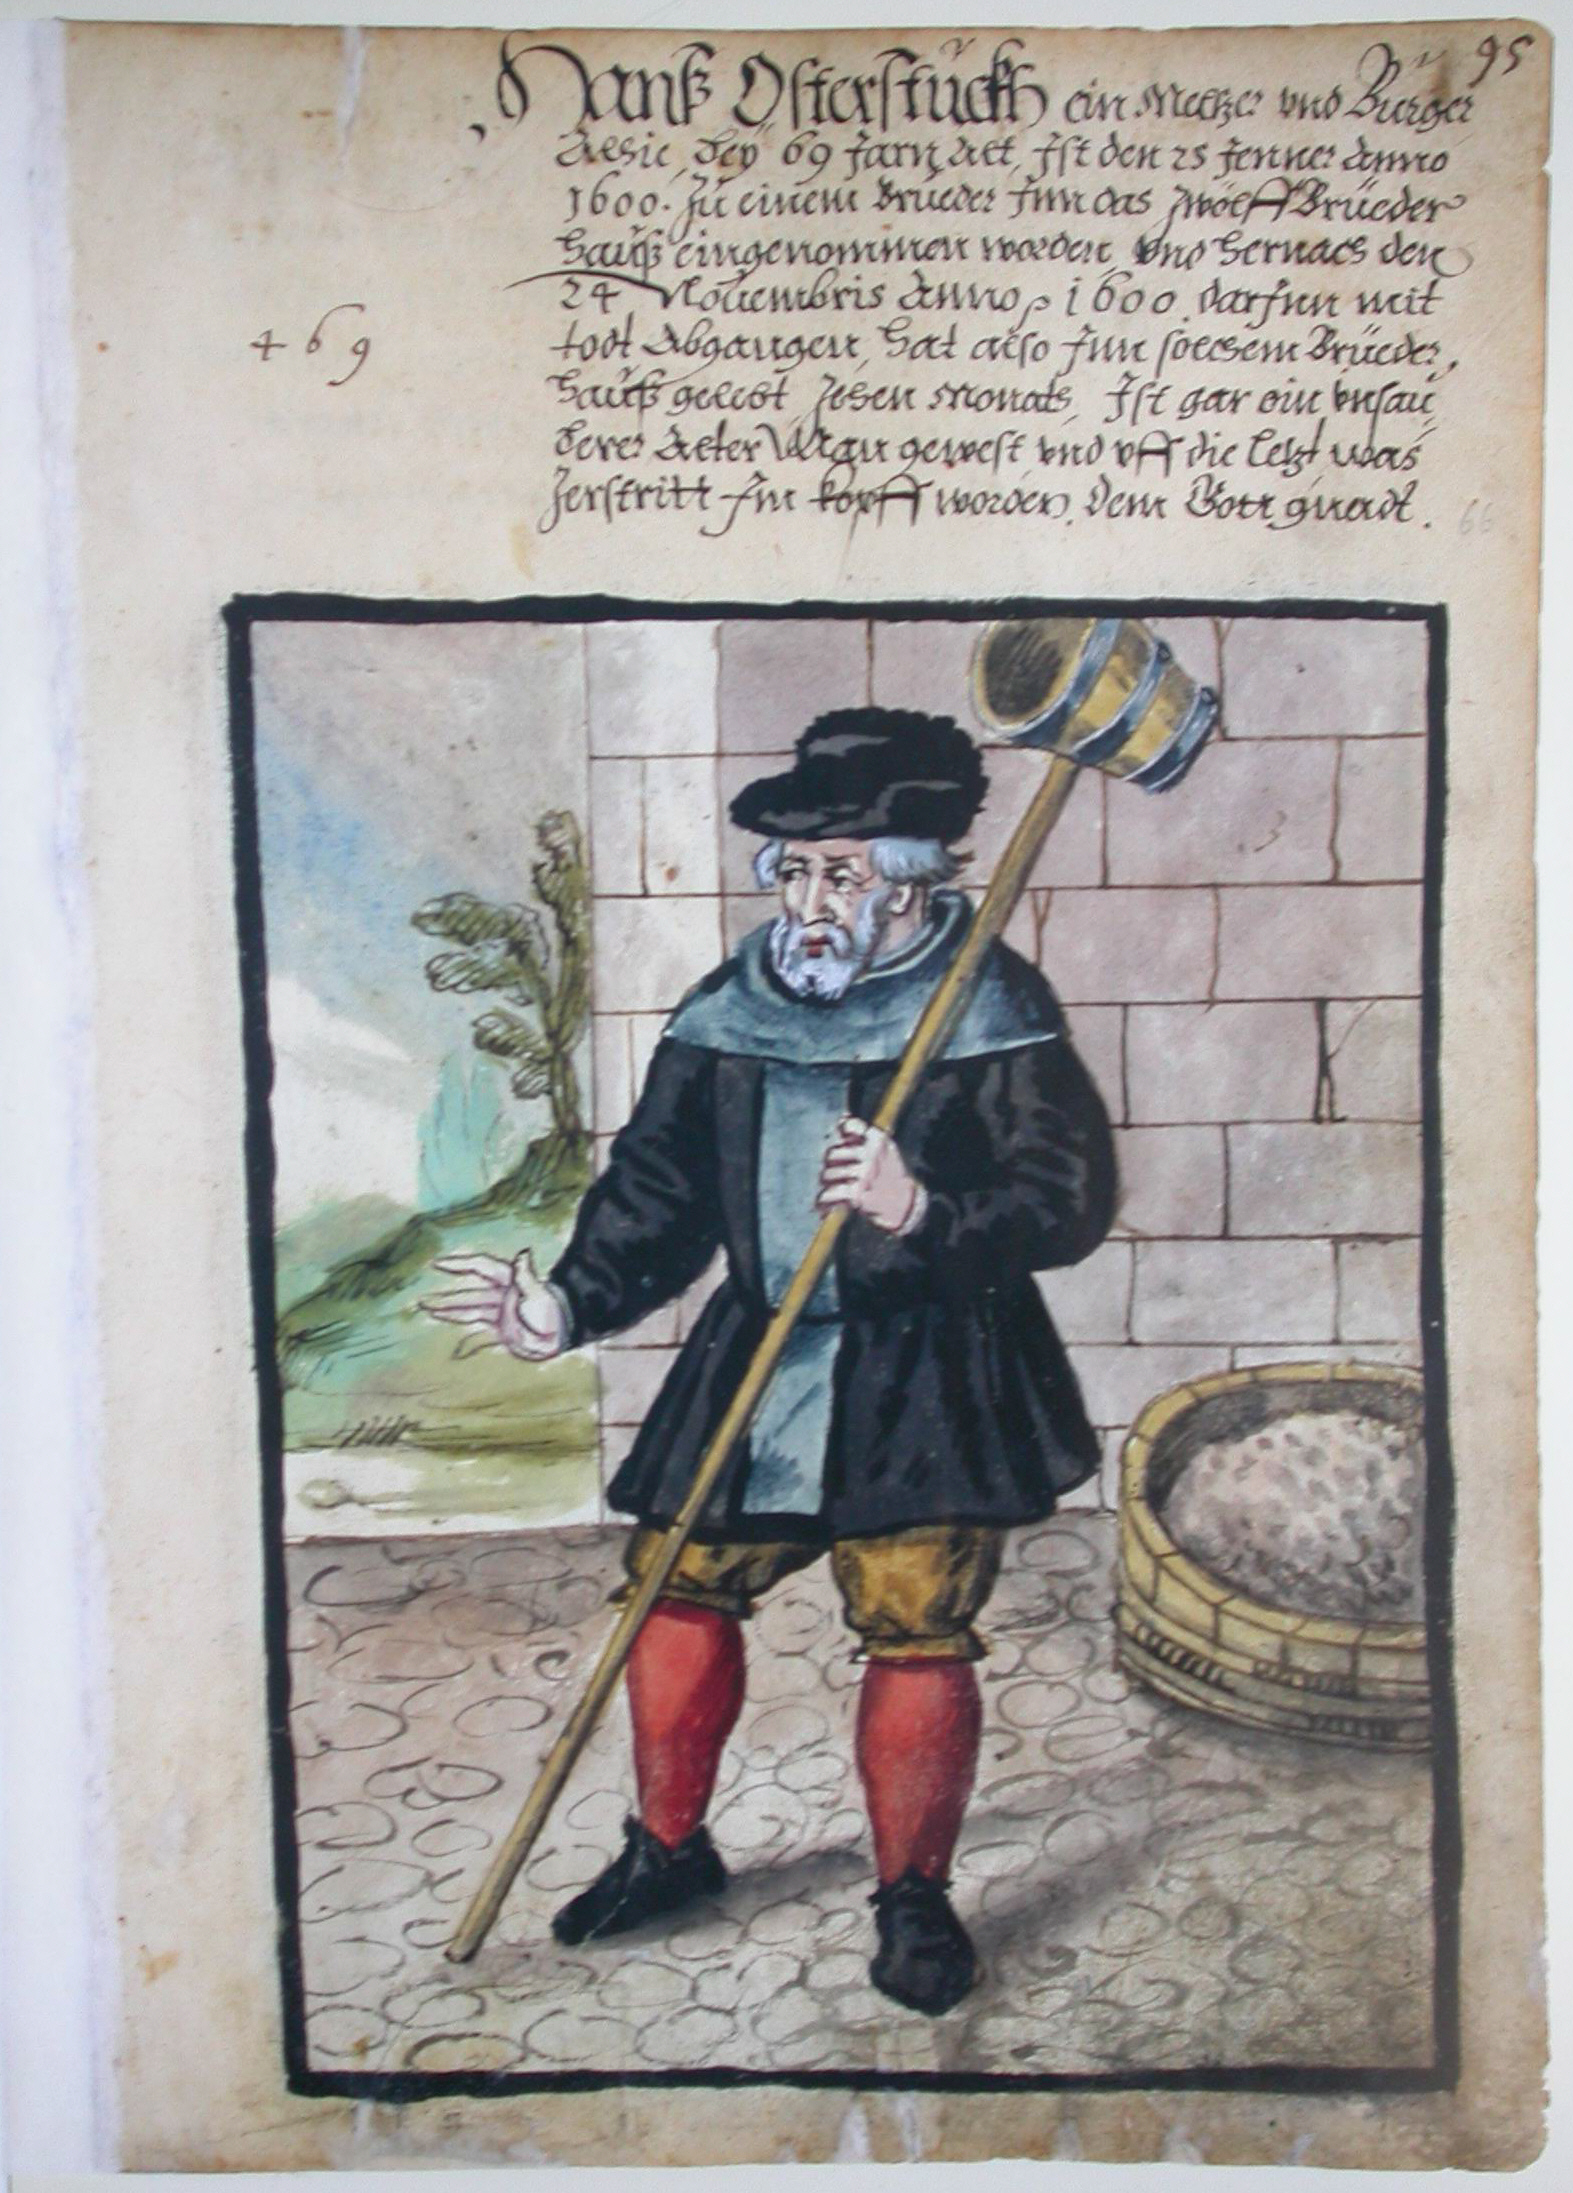 95
Hannß Osterstückh ein Meltzer vnd Burger
Alhie, bey 69 Jarn Alt, Ist den 25 Jenner Anno
1600. Zu einem Brueder Inn das Zwölff Brüeder
hauß eingenommen worden, vnd hernach den
24 Nouembris Anno 1600 darInn mit
469
todt Abgangen, hat also Inn solchem Brüeder,
hauß gelebt Zehen Monats, Ist gar ein vnsau,
berer Alter Man gewest vnd vff die letzt was
Zerstritt Im kopff worden, dem Gott gnadt.
66